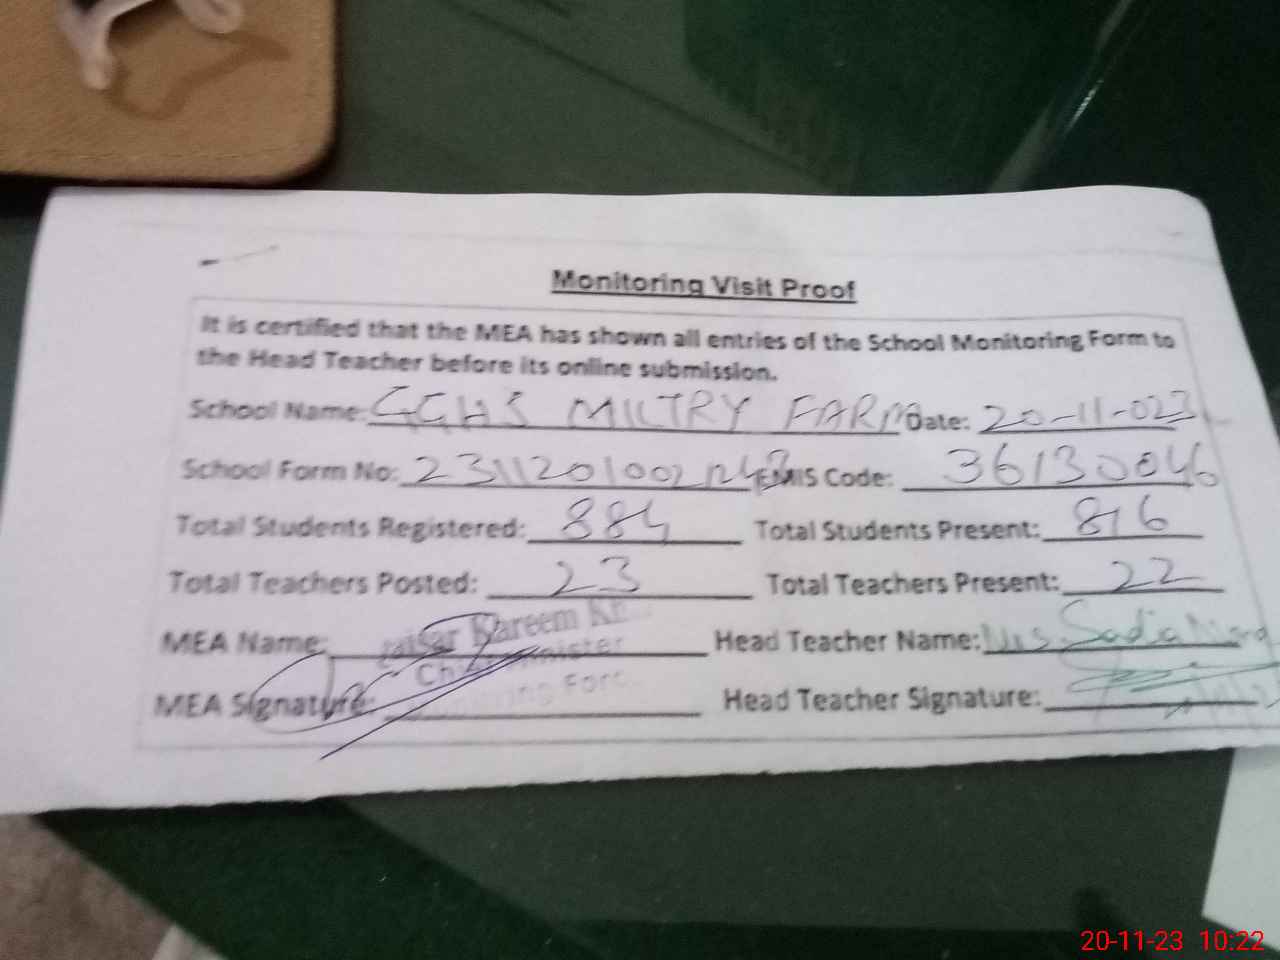 Monitoring Visit Proof
It is certified that the MEA has shown all entries of the School Monitoring Form to
the Head Teacher before its online submission.
School Name: GGHS MILTRY FARM Date: 20-11-023
School Form No: 231120100212 EMIS Code: 36130046
Total Students Registered: 884 Total Students Present: 816
Total Teachers Posted: 23 Total Teachers Present: 22
MEA Name: Kareem Head Teacher Name: Mrs. Sadia
MEA Signature: Head Teacher Signature:
20-11-23 10:22